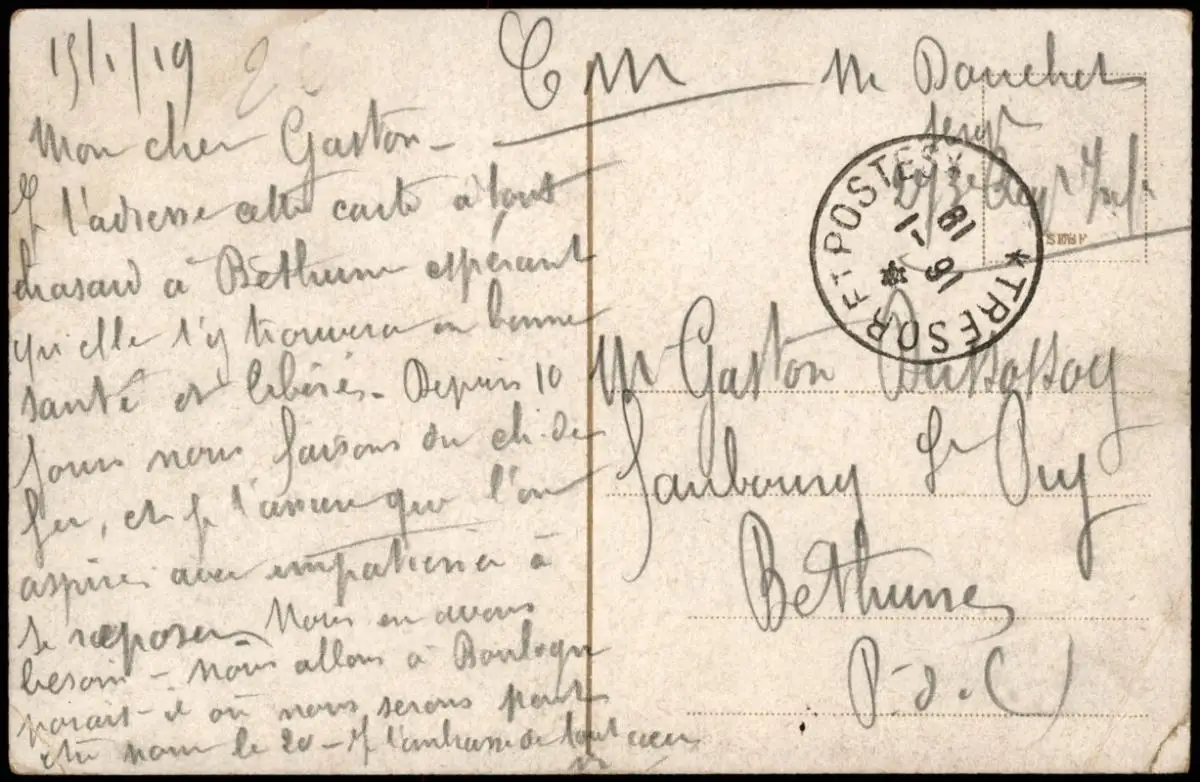 15/1/19
Mon cher Gaston -
Je t'adresse cette carte à tout
hasard à Béthune espérant
qu'elle t'y trouvera en bonne
santé et libérés - Depuis 10
jours nous faisons du ch. de
fer, et je t'assure que l'on
aspire avec impatience à
se reposer - Nous en avons
besoin - Nous allons à Boulogne
parait-il où nous serons peut
être pour le 20 - Je t'embrasse de tout cœur
CM
Mr Douchet
Sergt
Regt Inf.
TRESOR ET POSTES
16 -1 19
Mr Gaston
Faubourg St Pry
Béthune
P-d-C)